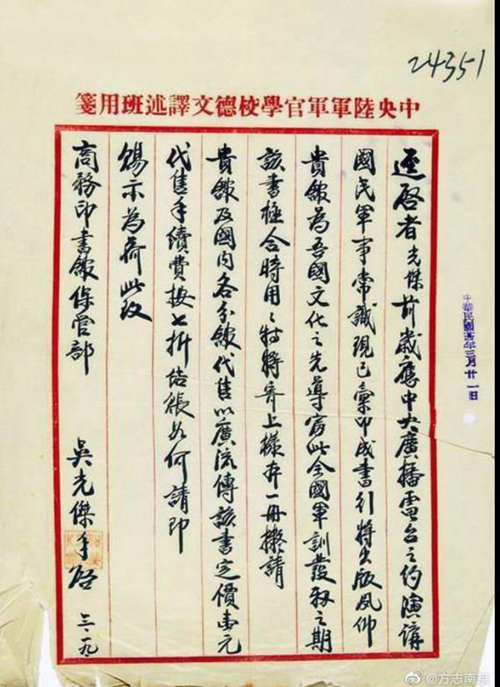 24351
中央陸軍軍官學校德文譯述班用箋
逕啓者光傑前歲應中央廣播電台之約演講
國民軍事常識現已彙印成書引將出版風仰
貴館為吾國文化之先導當此全國軍訓發軔之期
該書極合時用之特將寄上樣本一冊擬請
貴館及國内各分館代售以廣流傳該書定價壹元
代售手續費按七折結帳如何請即
賜示為荷此致
商務印書館保管部
吳光傑手啓 三·一九
中華民國年三月廿一日
@方志南京